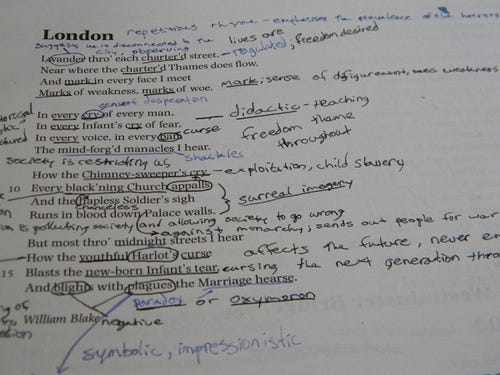 London repetitious rhyme - emphasises the prevalence of
suggests he is disconnected to the lives are
city, observing
I wander thro' each charter'd street, - regulated; freedom desired
Near where the charter'd Thames does flow,
And mark in every face I meet
Marks of weakness, marks of woe. mark; sense of disfigurement, sees weakness
sense of desperation
In every cry of every man, didactic - teaching
In every Infant's cry of fear.
In every voice, in every ban curse freedom theme
The mind-forg'd manacles I hear. throughout
society is restricting as shackles
How the Chimney-sweeper's cry - exploitation, child slavery
10 Every black'ning Church appalls
And the hapless Soldier's sigh surreal imagery
chanceless
Runs in blood down Palace walls.
is polluting society and allowing society to go wrong
against monarchy; sends out people for war
But most thro' midnight streets I hear
How the youthful Harlot's curse affects the future, never
15 Blasts the new-born Infant's tear, cursing the next generation
And blights with plagues the Marriage hearse.
Paradox or Oxymoron
William Blake negative
symbolic, impressionistic